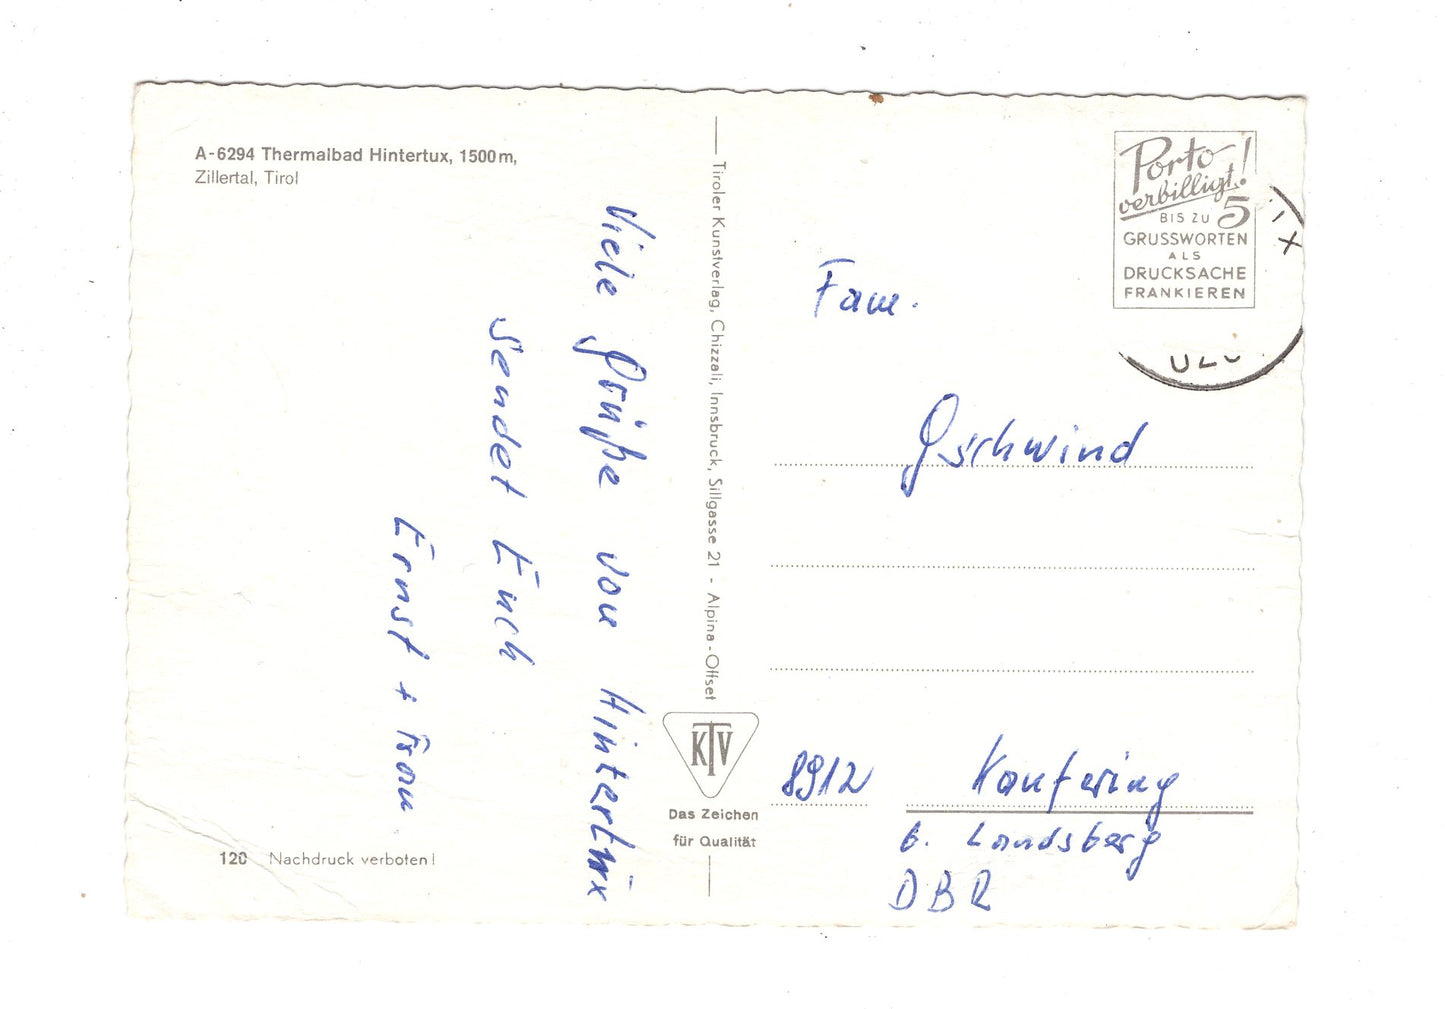 A-6294 Thermalbad Hintertux, 1500 m,
Zillertal, Tirol
Viele Grüße von Hintertux
sendet Euch
Ernst + Frau
120 Nachdruck verboten!
Tiroler Kunstverlag, Chizzali, Innsbruck, Sillgasse 21 - Alpina-Offset
KTV
Das Zeichen
für Qualität
Porto
verbilligt!
BIS ZU 5
GRUSSWORTEN
ALS
DRUCKSACHE
FRANKIEREN
Fam.
Gschwind
8912 Kaufering
b. Landsberg
DBR